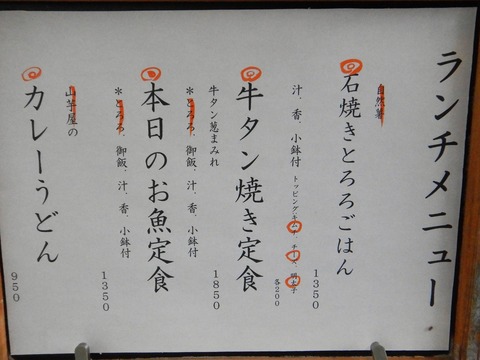 ランチメニュー
自然薯
石焼きとろろごはん
1350
汁、香、小鉢付
トッピングキムチ、チーズ、明太子
各200
牛タン焼き定食
牛タン葱まみれ
1850
*とろろ、御飯、汁、香、小鉢付
本日のお魚定食
*とろろ、御飯、汁、香、小鉢付
1350
山芋屋の
カレーうどん
950